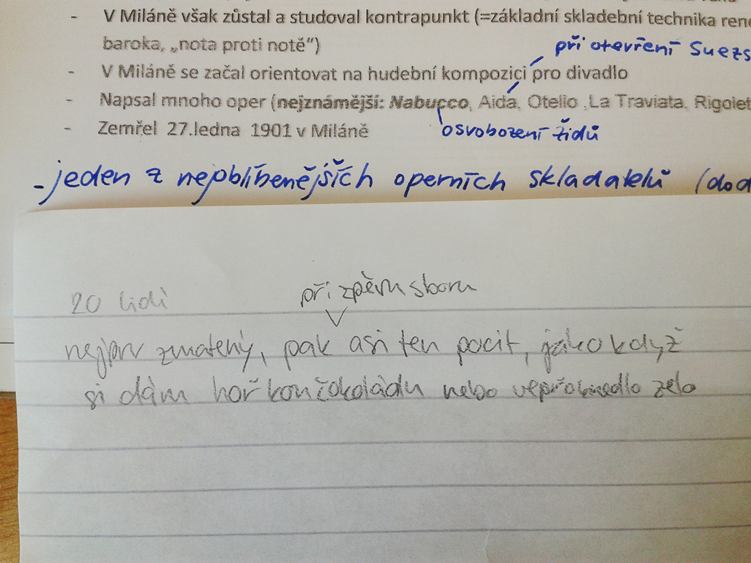 - V Miláně však zůstal a studoval kontrapunkt (=základní skladební technika rene
baroka, „nota proti notě“)
při otevření Suezs
- V Miláně se začal orientovat na hudební kompozici pro divadlo
- Napsal mnoho oper (nejznámější: Nabucco, Aida, Otello ,La Traviata, Rigolet
- Zemřel 27.ledna 1901 v Miláně
osvobození židů
- jeden z nejoblíbenějších operních skladatelů (dod
při zpěvu sboru
20 lidí
nejprv zmatený, pak asi ten pocit, jako když
si dám hořkou čokoládu nebo vepřo knedlo zelo